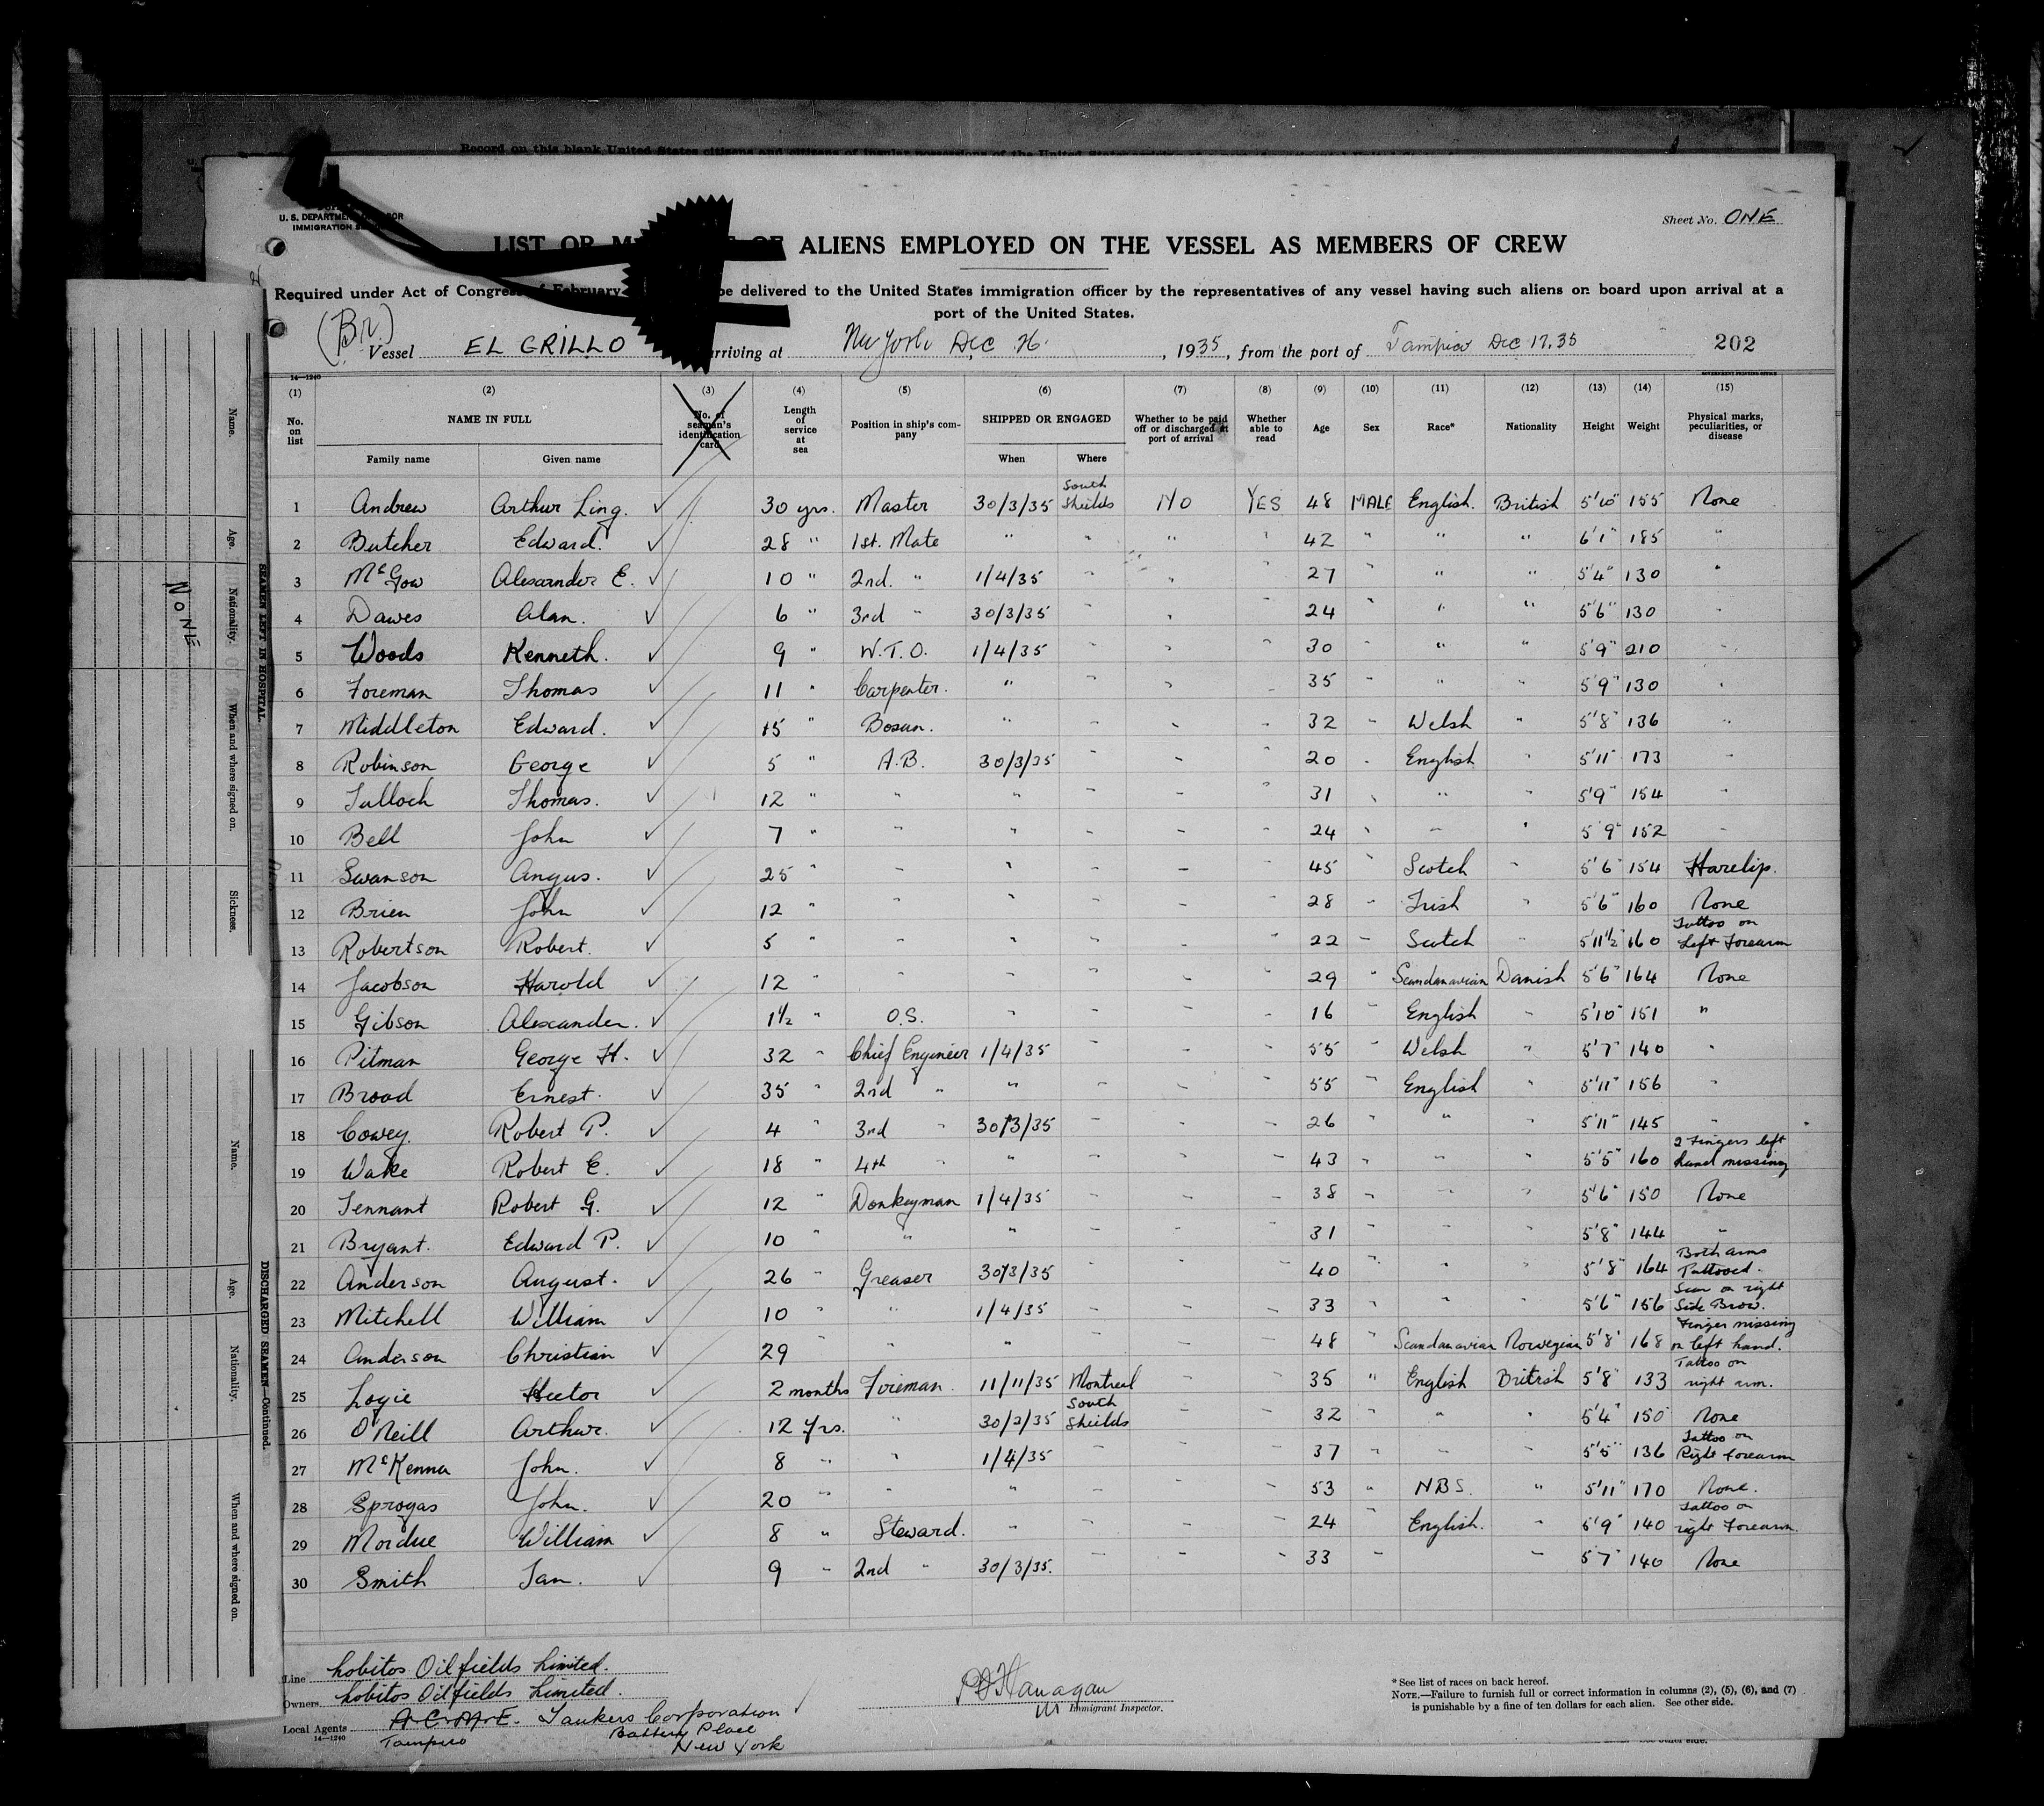 Record on this blank United States citizens and citizens of insular possessions of the United States
U. S. DEPARTMENT OF LABOR
IMMIGRATION
Sheet No. ONE
LIST OR OF ALIENS EMPLOYED ON THE VESSEL AS MEMBERS OF CREW
Required under Act of Congress of February be delivered to the United States immigration officer by the representatives of any vessel having such aliens on board upon arrival at a
port of the United States.
(Br.)
Vessel EL GRILLO arriving at New York Dec 26. , 1935, from the port of Tampico Dec 17.35 202
14—1240 GOVERNMENT PRINTING OFFICE
(1) (2) (3) (4) (5) (6) (7) (8) (9) (10) (11) (12) (13) (14) (15)
No. on list NAME IN FULL No. of seaman's identification card Length of service at sea Position in ship's company SHIPPED OR ENGAGED Whether to be paid off or discharged at port of arrival Whether able to read Age Sex Race* Nationality Height Weight Physical marks, peculiarities, or disease
Family name Given name When Where
1 Andrew Arthur Ling. ✓ 30 yrs. Master 30/3/35 South Shields NO YES 48 MALE English. British 5'10" 155 None
2 Butcher Edward. ✓ 28 " 1st. Mate " " " " 42 " " " 6'1" 185 "
3 McGow Alexander E. ✓ 10 " 2nd. " 1/4/35 " " 27 " " " 5'4" 130 "
4 Dawes Alan. ✓ 6 " 3rd " 30/3/35 " " " 24 " " " 5'6" 130 "
5 Woods Kenneth. ✓ 9 " W.T.O. 1/4/35 " " " 30 " " " 5'9" 210 "
6 Foreman Thomas ✓ 11 " Carpenter. " " " " 35 " " " 5'9" 130 "
7 Middleton Edward. ✓ 15 " Bosun. " " " " 32 " Welsh " 5'8" 136 "
8 Robinson George ✓ 5 " A.B. 30/3/35 " " " 20 " English " 5'11" 173 "
9 Tulloch Thomas. ✓ 12 " " " " " " 31 " " " 5'9" 154 "
10 Bell John ✓ 7 " " " " " " 24 " " " 5'9" 152 "
11 Swanson Angus. ✓ 25 " " " " " 45 " Scotch " 5'6" 154 Harelip.
12 Brien John ✓ 12 " " " " " " 28 " Irish " 5'6" 160 None
13 Robertson Robert. ✓ 5 " " " " " " 22 " Scotch " 5'11½" 160 Tattoo on Left Forearm
14 Jacobson Harold ✓ 12 " " " " " " 29 " Scandanavian Danish 5'6" 164 None
15 Gibson Alexander. ✓ 1½ " O.S. " " " " 16 " English " 5'10" 151 "
16 Pitman George H. ✓ 32 " Chief Engineer 1/4/35 " " " 55 " Welsh " 5'7" 140 "
17 Broad Ernest. ✓ 35 " 2nd " " " " " 55 " English " 5'11" 156 "
18 Cowey. Robert P. ✓ 4 " 3rd " 30/3/35 " " " 26 " " " 5'11" 145 "
19 Wake Robert E. ✓ 18 " 4th " " " " " 43 " " " 5'5" 160 2 Fingers left hand missing
20 Tennant Robert G. ✓ 12 " Donkeyman 1/4/35 " " " 38 " " " 5'6" 150 None
21 Bryant. Edward P. ✓ 10 " " " " " " 31 " " " 5'8" 144 "
22 Anderson August. ✓ 26 " Greaser 30/3/35 " " " 40 " " " 5'8" 164 Both arms Tattooed.
23 Mitchell William ✓ 10 " " 1/4/35 " " " 33 " " " 5'6" 156 Scar on right Side Brow.
24 Anderson Christian ✓ 29 " " " " " " 48 " Scandanavian Norwegian 5'8" 168 Finger missing on left hand.
25 Logie Hector ✓ 2 months Fireman. 11/11/35 Montreal " " 35 " English British 5'8" 133 Tattoo on right arm.
26 O'Neill Arthur. ✓ 12 yrs. " 30/3/35 South Shields " " 32 " " " 5'4" 150 None
27 McKenna John. ✓ 8 " " 1/4/35 " " " 37 " " " 5'5" 136 Tattoo on Right Forearm
28 Sprogas John. ✓ 20 " " " " " " 53 " NBS. " 5'11" 170 None.
29 Mordue William ✓ 8 " Steward. " " " " 24 " English. " 5'9" 140 Tattoo on right Forearm.
30 Smith Ian. ✓ 9 " 2nd " 30/3/35. " " " 33 " " 5'7" 140 None
Line Lobitos Oilfields Limited.
Owners Lobitos Oilfields Limited.
Local Agents Tankers Corporation
14—1240 Tampico Battery Place
New York
Immigrant Inspector.
* See list of races on back hereof.
NOTE.—Failure to furnish full or correct information in columns (2), (5), (6), and (7)
is punishable by a fine of ten dollars for each alien. See other side.
See other side.
SEAMEN LEFT IN HOSPITAL.
Name.
Age.
Nationality.
When and where signed on.
Sickness.
NONE
DISCHARGED SEAMEN—Continued.
Name.
Age.
Nationality.
When and where signed on.